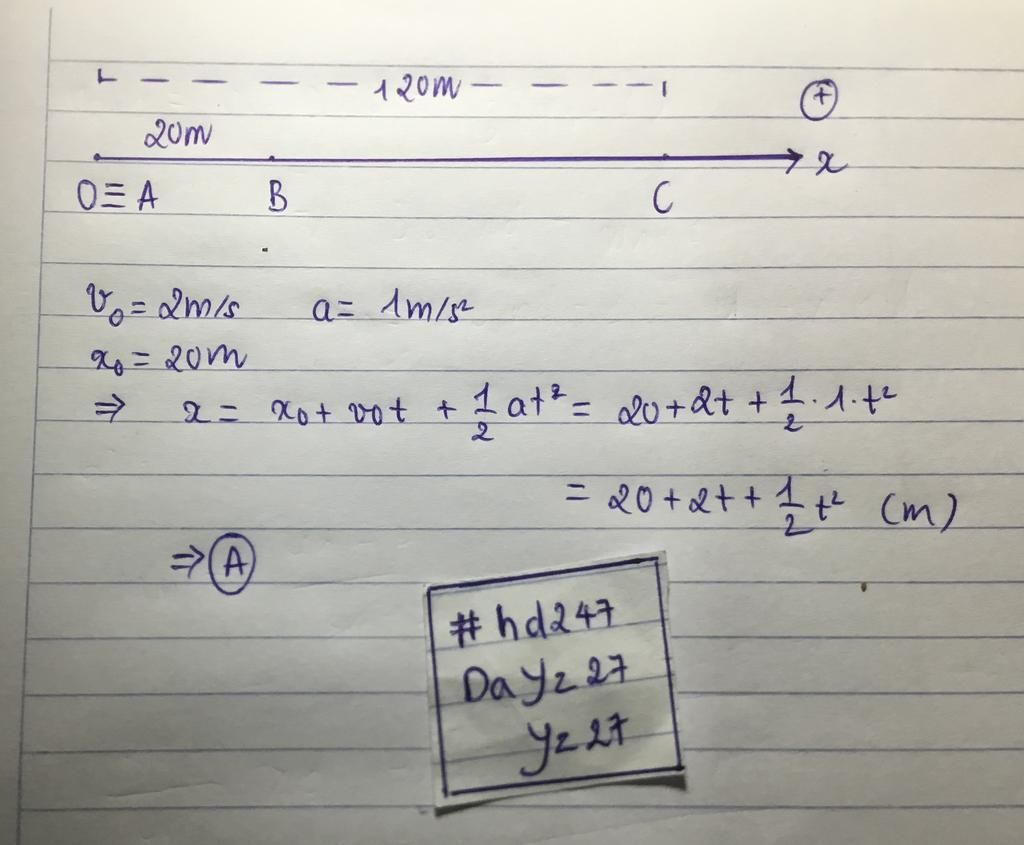 120m
⊕
20m
x
O≡A B C
v₀ = 2m/s a = 1m/s²
x₀ = 20m
⇒ x = x₀ + v0t + 1/2 at² = 20 + 2t + 1/2 · 1 · t²
= 20 + 2t + 1/2 t² (m)
⇒ Ⓐ
#hd247
DaYz27
Yz27